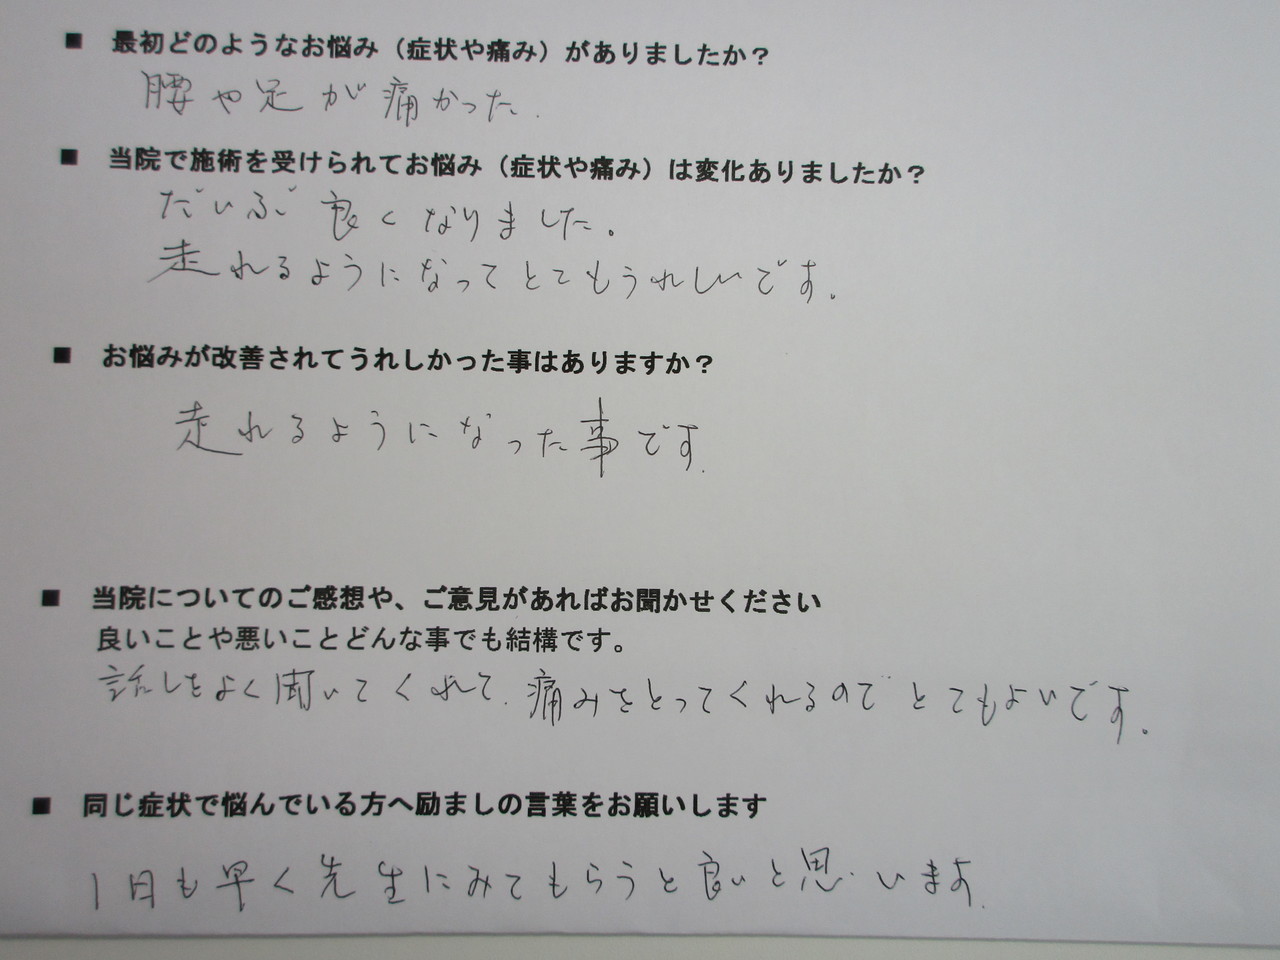 ■ 最初どのようなお悩み（症状や痛み）がありましたか？
腰や足が痛かった.
■ 当院で施術を受けられてお悩み（症状や痛み）は変化ありましたか？
だいぶ良くなりました。
走れるようになってとてもうれしいです。
■ お悩みが改善されてうれしかった事はありますか？
走れるようになった事です.
■ 当院についてのご感想や、ご意見があればお聞かせください
良いことや悪いことどんな事でも結構です。
話しをよく聞いてくれて、痛みをとってくれるのでとてもよいです。
■ 同じ症状で悩んでいる方へ励ましの言葉をお願いします
1日も早く先生にみてもらうと良いと思います.